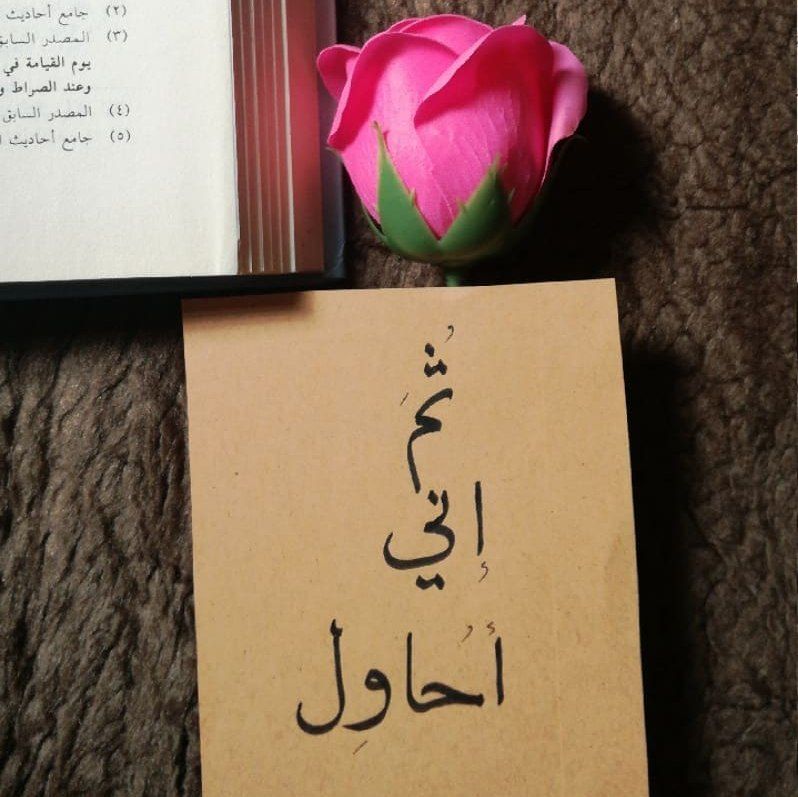 (٢) جامع أحاديث
(٣) المصدر السابق
يوم القيامة في
وعند الصراط و
(٤) المصدر السابق
(٥) جامع أحاديث ا
ثُمَ
إني
أُحاوِل